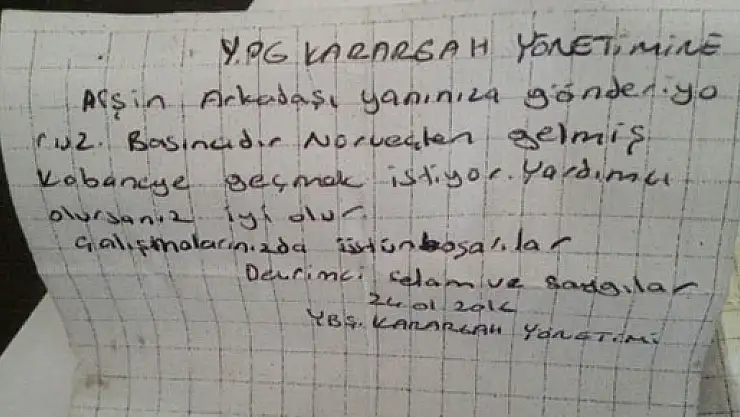 Y.PG KARARGAH YÖNETiMiNE
Afşin Arkadaşı yanınıza gönderiyo
ruz. Basıncıdır Norveçten gelmiş
Kobaneye geçmek istiyor. Yardımcı
olursanız iyi olur
Çalışmalarınızda üstün başarılar
Devrimci selam ve saygılar
24 01 2016
YBŞ. KARARGAH YÖNETİMİ